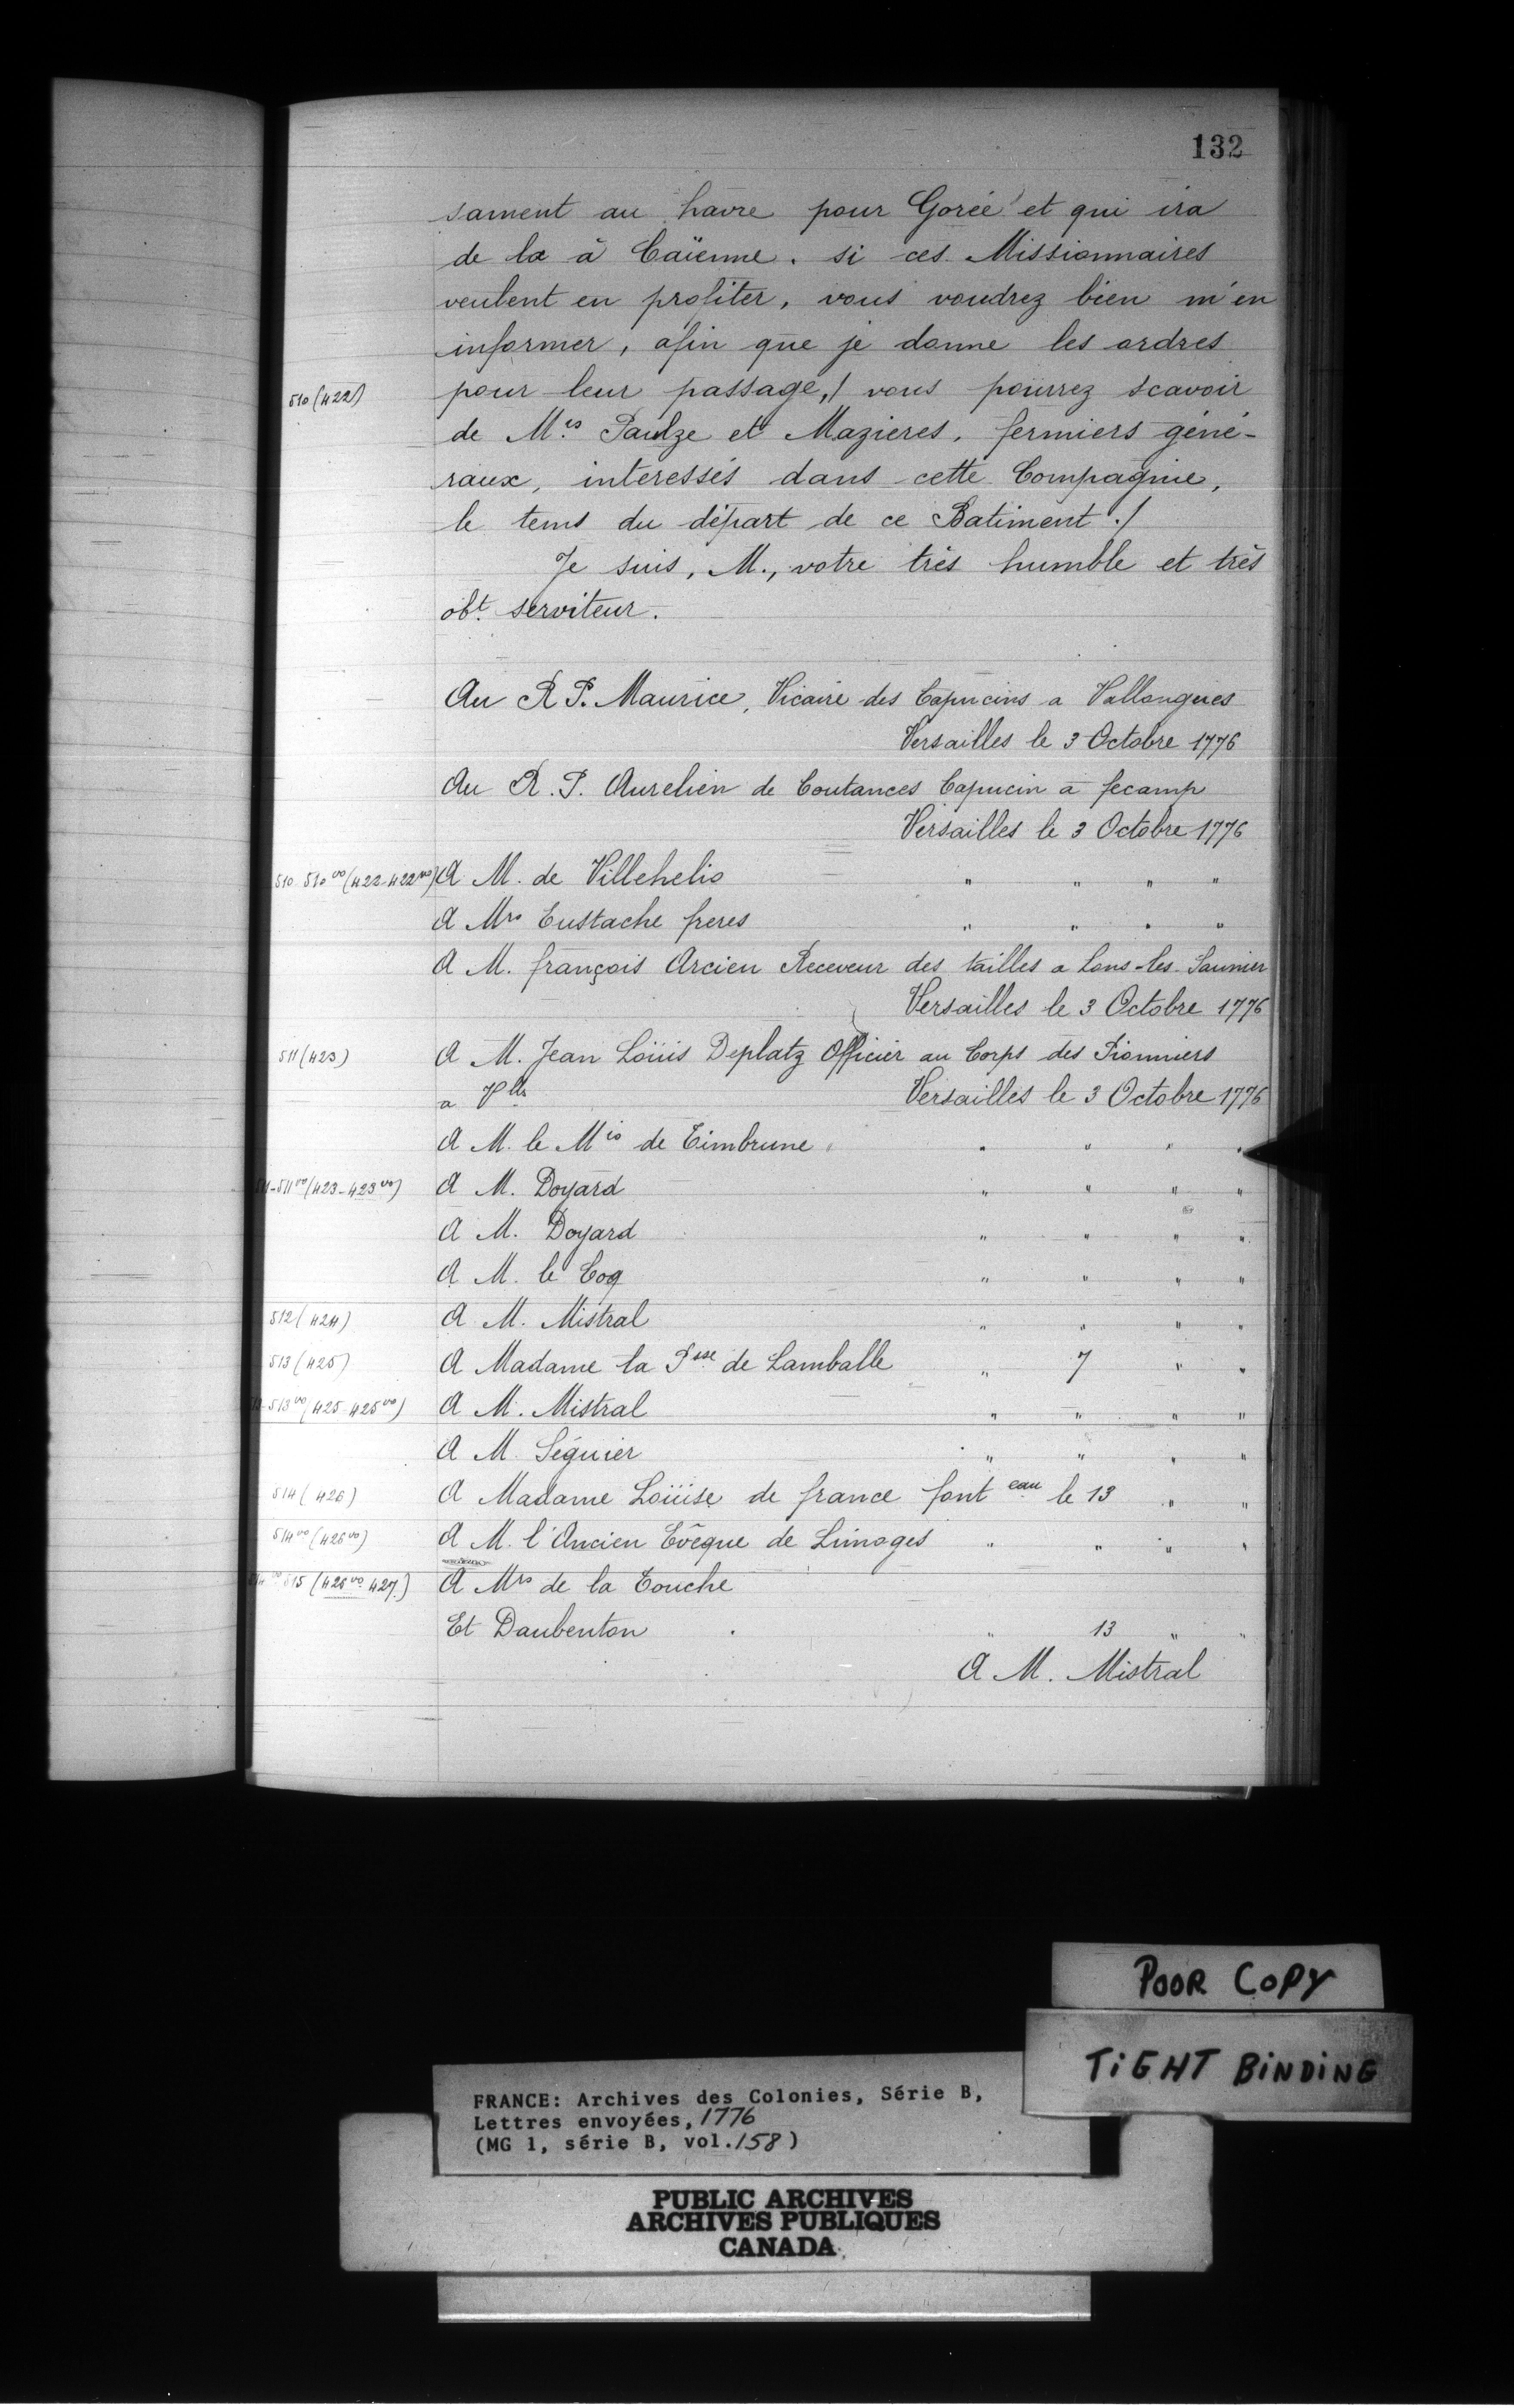 132
sament au havre pour Gorée et qui ira
de la à Caïenne. si ces Missionnaires
veulent en profiter, vous voudrez bien m'en
informer, afin que je donne les ordres
510 (422) pour leur passage,/ vous pourrez scavoir
de M.rs Paulze et Mazieres, fermiers géné-
raux, interessés dans cette Compagnie,
le tems du départ de ce Batiment./
Je suis, M., votre très humble et très
obt. serviteur.
Au R P. Maurice, Vicaire des Capucins a Vallongues
Versailles le 3 Octobre 1776
Au R. P. Aurelien de Coutances Capucin a fecamp
Versailles le 3 Octobre 1776
510 510 vo (422-422 vo) A M. de Villehelio " " " "
A Mrs Eustache freres " " " "
A M. françois Arcien Receveur des tailles a Lons-les-Saunier
Versailles le 3 Octobre 1776
511 (423) A M. Jean Loüis Deplatz Officier au Corps des Pionniers
a Vlles Versailles le 3 Octobre 1776
A M. le Mis de Timbrune " " " "
511-511 vo (423-423 vo) A M. Doyard " " " "
A M. Doyard " " " "
A M. le Coq " " " "
512 (424) A M. Mistral " " " "
513 (425) A Madame la Psse de Lamballe " 7 " "
513 vo (425-425 vo) A M. Mistral " " " "
A M. Séguier " " " "
514 (426) A Madame Loüise de france font eau le 13 " "
514 vo (426 vo) A M. l'Ancien Evêque de Limoges " " " "
514 vo 515 (426 vo 427.) A Mrs de la Touche
Et Daubenton " 13 " "
A M. Mistral
POOR COPY
TIGHT BINDING
FRANCE: Archives des Colonies, Série B,
Lettres envoyées, 1776
(MG 1, série B, vol. 158)
PUBLIC ARCHIVES
ARCHIVES PUBLIQUES
CANADA